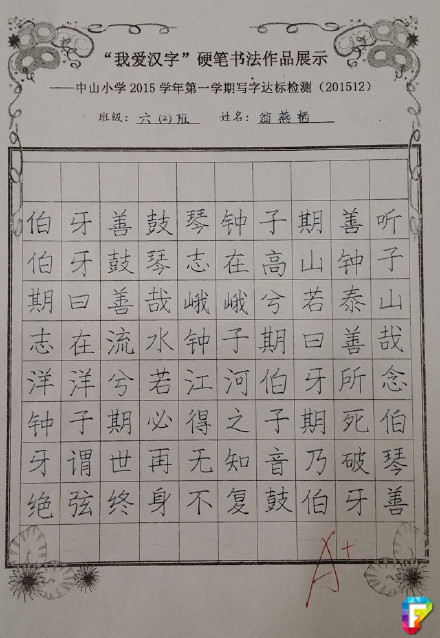 “我爱汉字”硬笔书法作品展示
——中山小学2015学年第一学期写字达标检测（201512）
班级：六(2)班 姓名：翁燕栖
伯牙善鼓琴钟子期善听
伯牙鼓琴志在高山钟子
期曰善哉峨峨兮若泰山
志在流水钟子期曰善哉
洋洋兮若江河伯牙所念
钟子期必得之子期死伯
牙谓世再无知音乃破琴
绝弦终身不复鼓伯牙善
A+